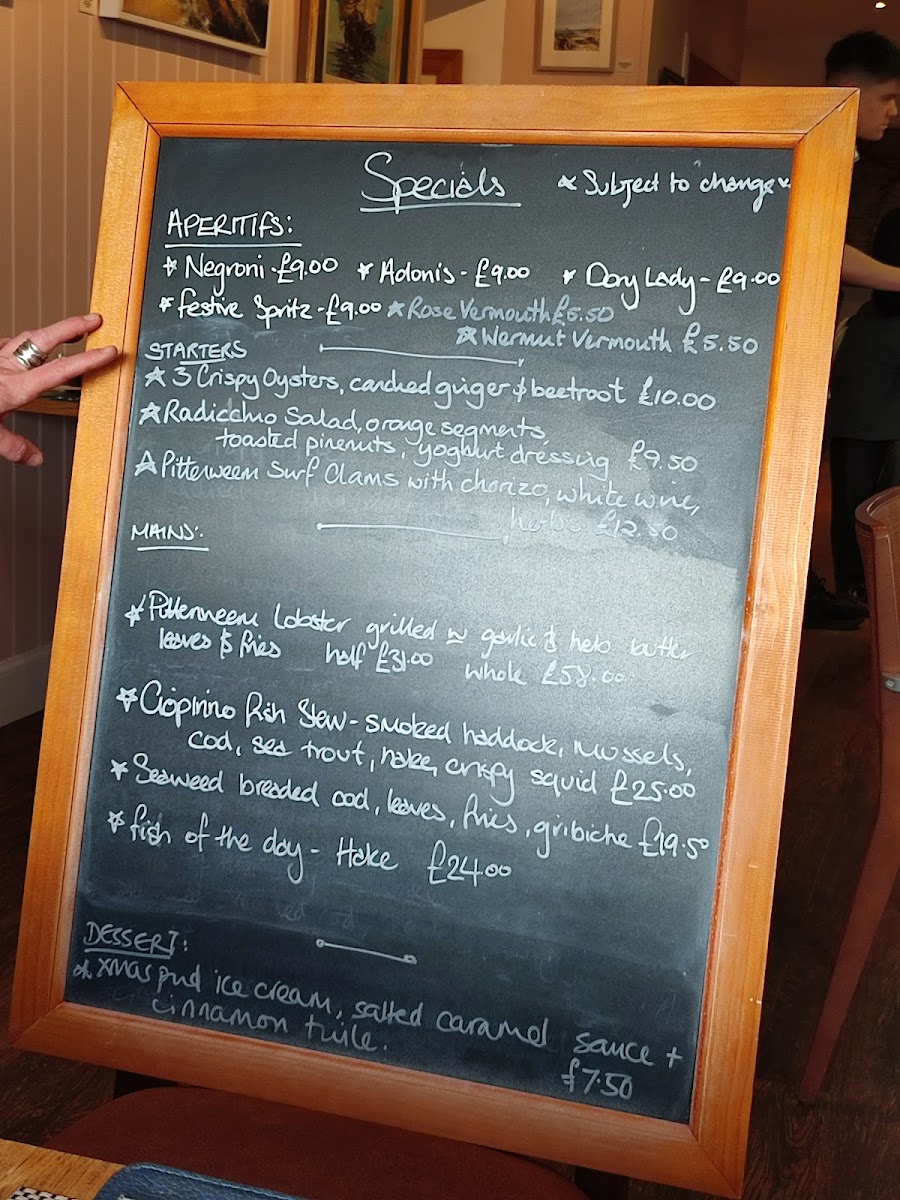 Specials * Subject to change *
APERITIFS:
* Negroni - £9.00 * Adonis - £9.00 * Dory Lady - £9.00
* Festive Spritz - £9.00 * Rose Vermouth £5.50
* Wermut Vermouth £5.50
STARTERS
* 3 Crispy Oysters, candied ginger & beetroot £10.00
* Radicchio Salad, orange segments,
toasted pinenuts, yoghurt dressing £9.50
* Pittenweem Surf Clams with chorizo, white wine,
herbs £12.50
MAINS:
* Pittenweem Lobster grilled w garlic & herb butter
leaves & fries half £31.00 whole £58.00
* Ciopinno Fish Stew - smoked haddock, mussels,
cod, sea trout, hake, crispy squid £25.00
* Seaweed breaded cod, leaves, fries, gribiche £19.50
* fish of the day - Hake £24.00
DESSERT:
* xmas pud ice cream, salted caramel sauce +
cinnamon tuile. £7.50